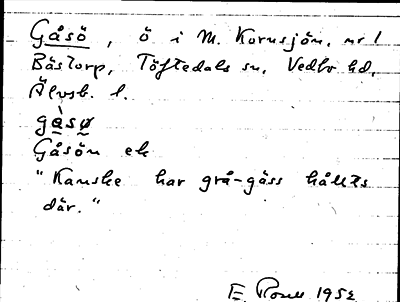 Gåsö, ö i M. Kornsjön, nr 1
Bästorp, Töftedals sn, Vedbo hd,
Älvsb. l.
gàsø
Gåsön ek
"Kanske har grå-gäss hållts
där."
E. 1952